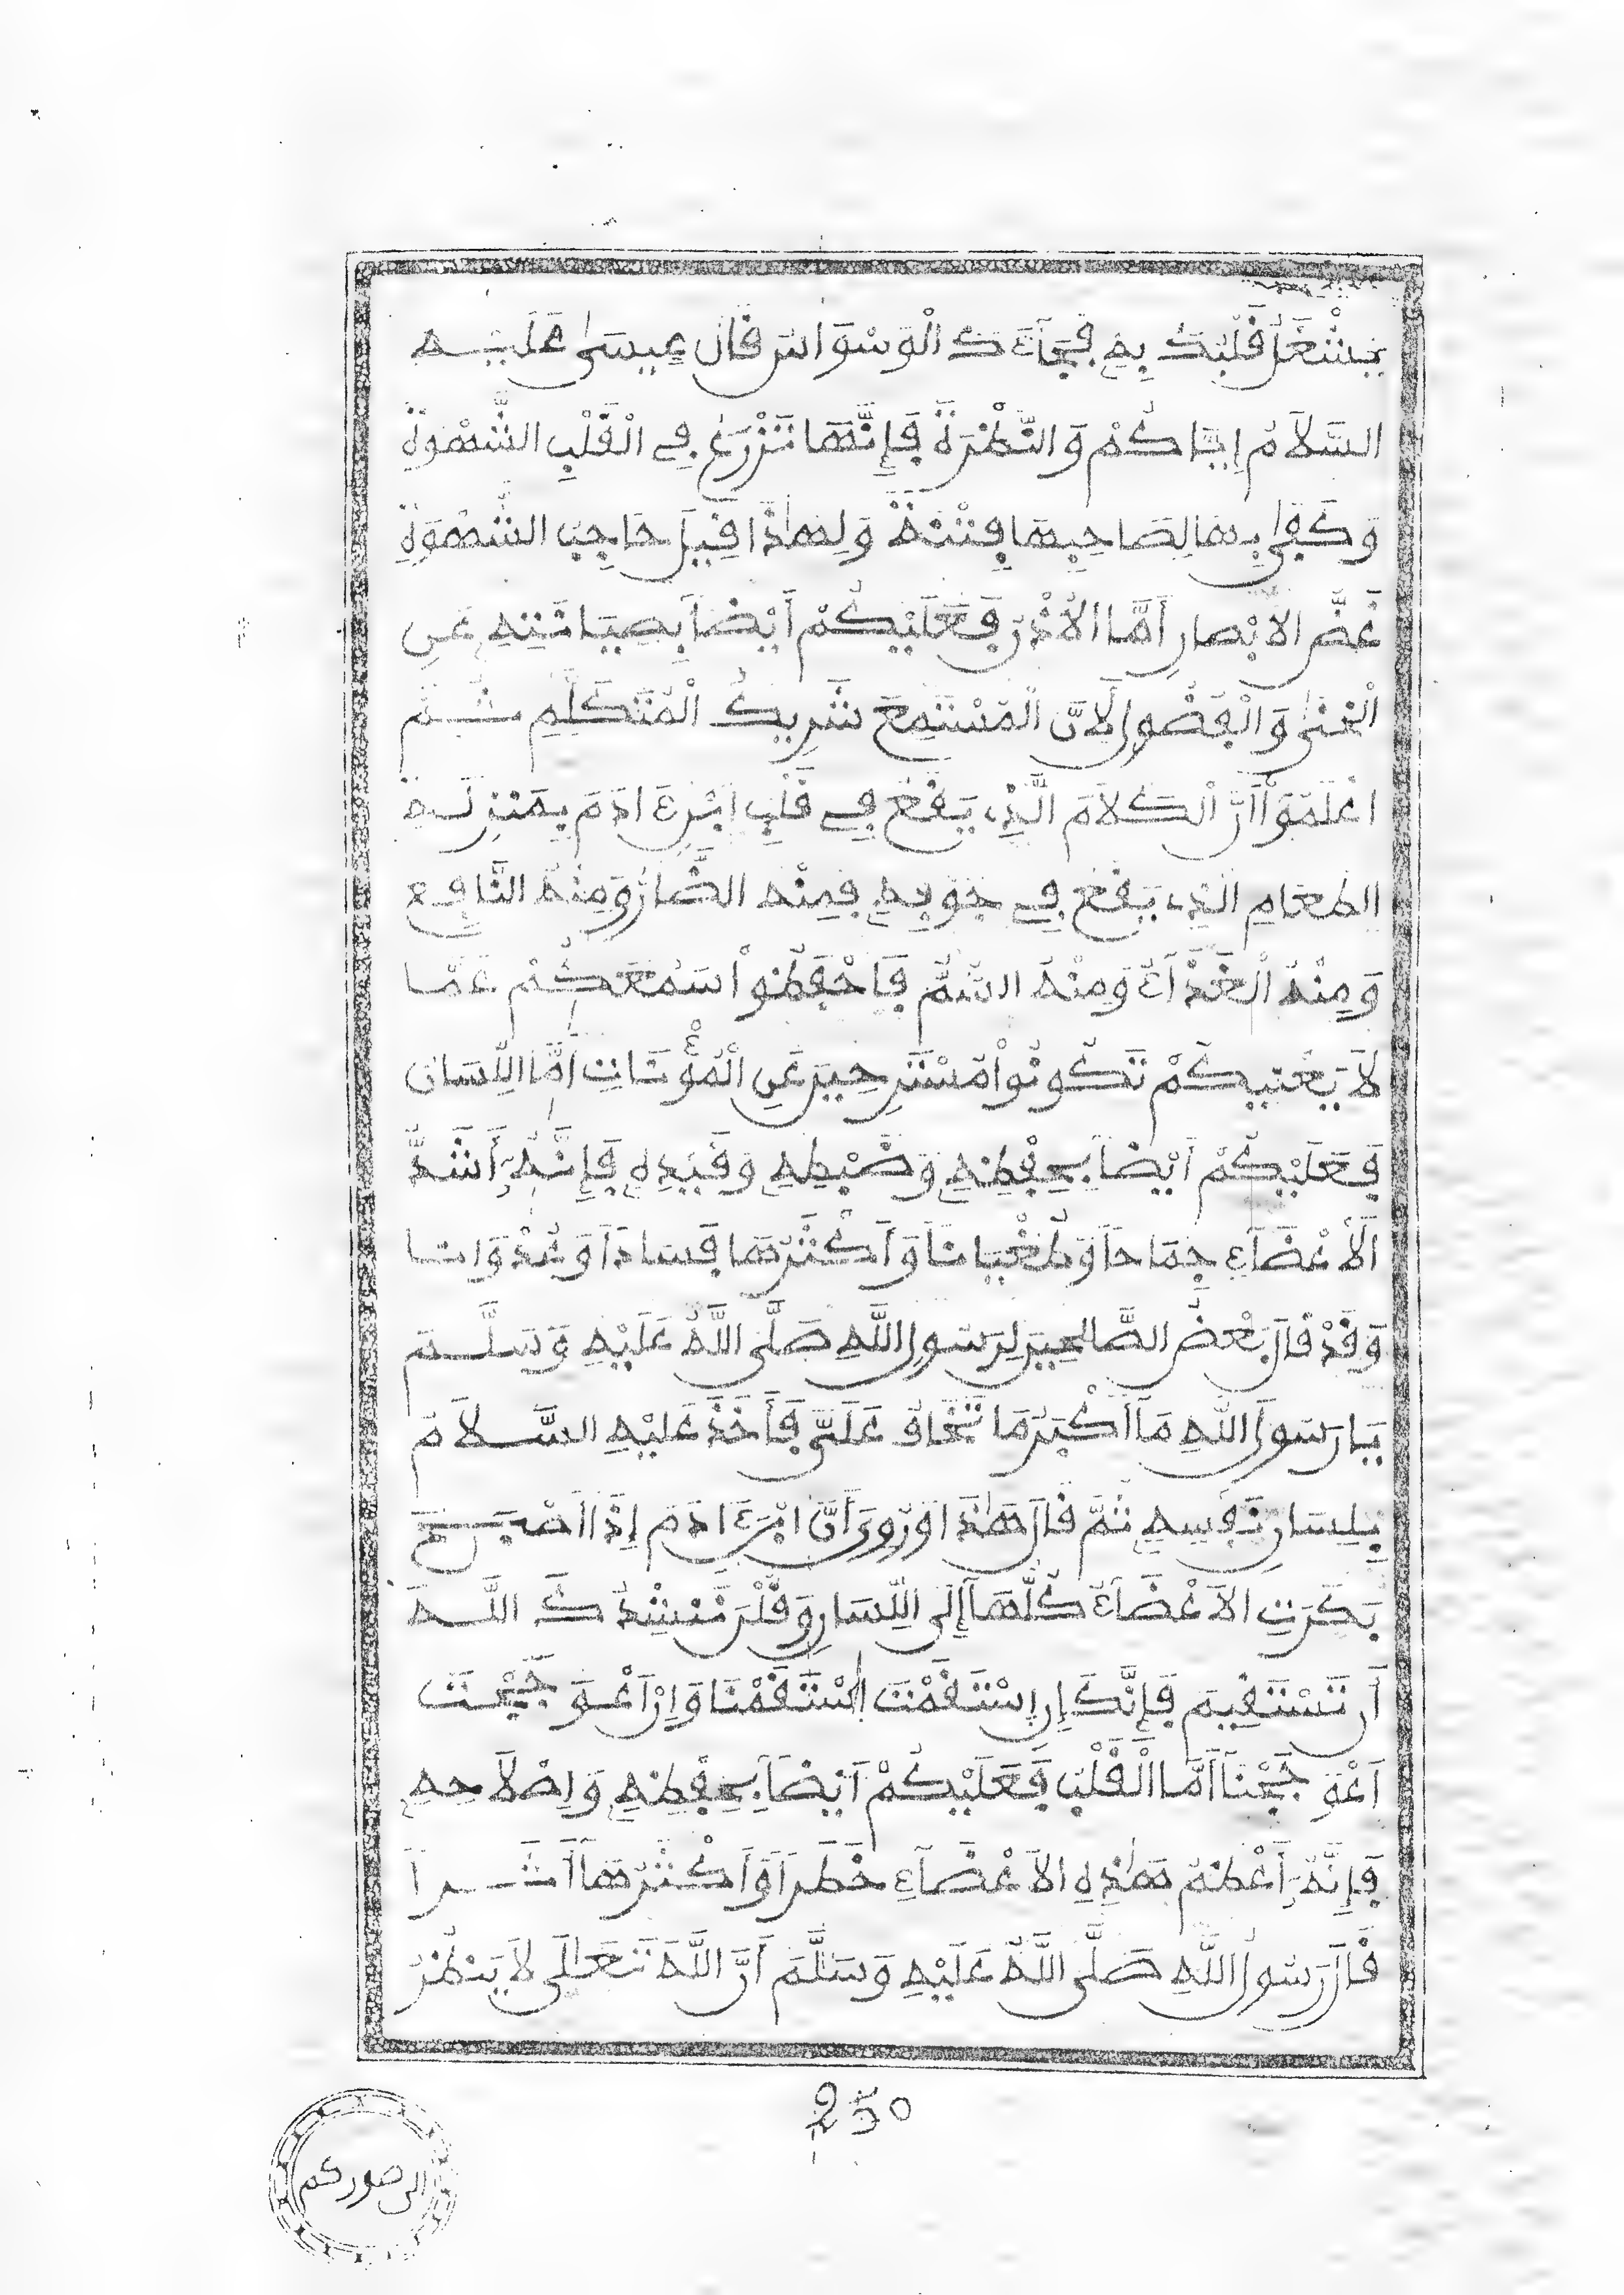 فَيَشْتَغِلُ قَلْبُكَ بِهِ فَيَجِيءُكَ الْوَسْوَاسُ قَالَ عِيسَى عَلَيْهِ
السَّلَامُ إِيَّاكُمْ وَالنَّظْرَةَ فَإِنَّهَا تَزْرَعُ فِي الْقَلْبِ الشَّهْوَةَ
وَكَفَى بِهَا لِصَاحِبِهَا فِتْنَةً وَلِهَذَا قِيلَ حَاجِبُ الشَّهْوَةِ
غَضُّ الأَبْصَارِ أَمَّا الأُذُنُ فَعَلَيْكُمْ أَيْضاً بِصِيَانَتِهِ عَنِ
الْخَنَى وَالْفُضُولِ لأَنَّ الْمُسْتَمِعَ شَرِيكُ الْمُتَكَلِّمِ ثُمَّ
اعْلَمُواْ أَنَّ الْكَلاَمَ الَّذِي يَقَعُ فِي قَلْبِ ابْنِ ءَادَمَ بِمَنْزِلَةِ
الطَّعَامِ الَّذِي يَقَعُ فِي جَوْفِهِ فَمِنْهُ الضَّارُّ وَمِنْهُ النَّافِعُ
وَمِنْهُ الْغِذَاءُ وَمِنْهُ السُّمُّ فَاحْفَظُواْ سَمْعَكُمْ عَمَّا
لاَ يَعْنِيكُمْ تَكُونُواْ مُسْتَرِحِينَ عَنِ الْمُؤْنَاتِ أَمَّا اللِّسَانُ
فَعَلَيْكُمْ أَيْضاً بِحِفْظِهِ وَضَبْطِهِ وَقَيْدِهِ فَإِنَّهُ أَشَدُّ
الأَعْضَاءِ جِمَاحاً وَطُغْيَاناً وَأَكْثَرُهَا فَسَاداً وَعُدْوَانا
وَقَدْ قَالَ بَعْضُ الصَّالِحِينَ لِرَسُولِ اللَّهِ صَلَّى اللَّهُ عَلَيْهِ وَسَلَّمَ
يَا رَسُولَ اللَّهِ مَا أَكْبَرُ مَا تَخَافُ عَلَيَّ فَأَخَذَ عَلَيْهِ السَّلاَمُ
بِلِسَانِ نَفْسِهِ ثُمَّ قَالَ هَذَا وَرُوِيَ أَنَّ ابْنَ ءَادَمَ إِذَا أَصْبَحَ
بَكَرَتِ الأَعْضَاءُ كُلُّهَا إِلَى اللِّسَانِ وَقُلْنَ نَنْشُدُكَ اللَّهَ
أَن تَسْتَقِيمَ فَإِنَّكَ إِنِ اسْتَقَمْتَ اسْتَقَمْنَا وَإِنْ اعْوَجَجْتَ
اعْوَجَجْنَا أَمَّا الْقَلْبُ فَعَلَيْكُمْ أَيْضاً بِحِفْظِهِ وَإِصْلاَحِهِ
فَإِنَّهُ أَعْظَمُ هَذِهِ الأَعْضَاءِ خَطَراً وَأَكْثَرُهَا أَثَراً
قَالَ رَسُولُ اللَّهِ صَلَّى اللَّهُ عَلَيْهِ وَسَلَّمَ أَنَّ اللَّهَ تَعَالَى لاَ يَنْظُرُ
250
الى صوركم